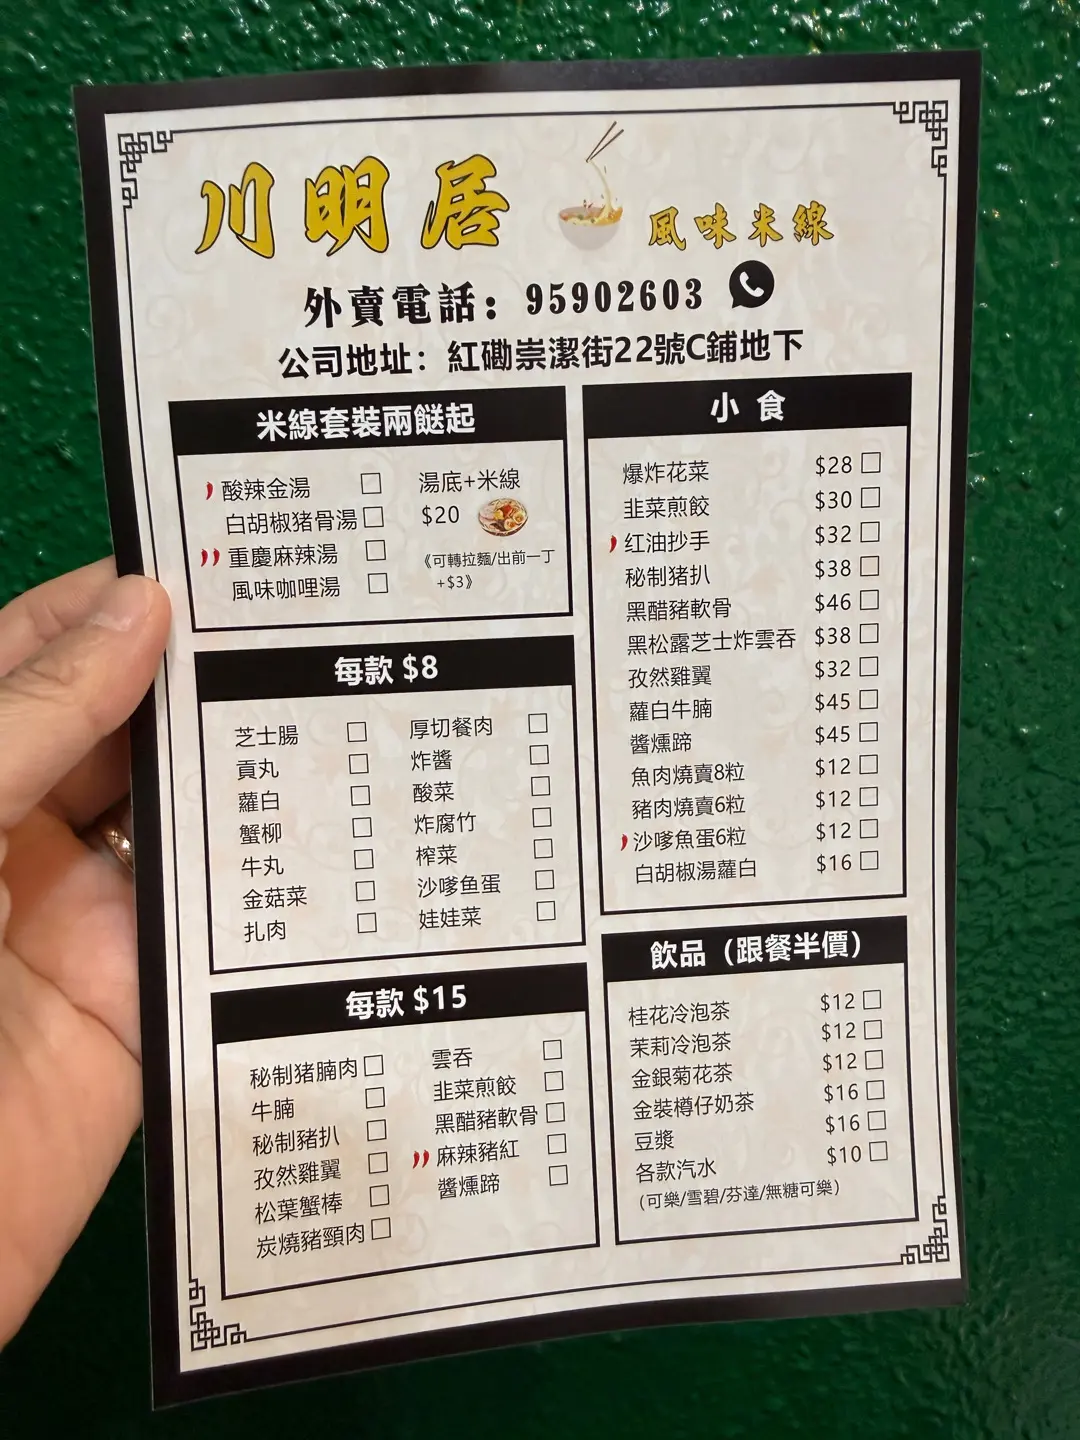 川明居 風味米線
外賣電話：95902603
公司地址：紅磡崇潔街22號C鋪地下
米線套裝兩餸起
酸辣金湯
白胡椒猪骨湯
重慶麻辣湯
風味咖哩湯
湯底+米線
$20
《可轉拉麵/出前一丁
+$3》
每款 $8
芝士腸
貢丸
蘿白
蟹柳
牛丸
金菇菜
扎肉
厚切餐肉
炸醬
酸菜
炸腐竹
榨菜
沙嗲鱼蛋
娃娃菜
每款 $15
秘制猪腩肉
牛腩
秘制豬扒
孜然雞翼
松葉蟹棒
炭燒豬頸肉
雲吞
韭菜煎餃
黑醋豬軟骨
麻辣豬紅
醬燻蹄
小 食
爆炸花菜 $28
韭菜煎餃 $30
红油抄手 $32
秘制猪扒 $38
黑醋豬軟骨 $46
黑松露芝士炸雲吞 $38
孜然雞翼 $32
蘿白牛腩 $45
醬燻蹄 $45
魚肉燒賣8粒 $12
豬肉燒賣6粒 $12
沙嗲魚蛋6粒 $12
白胡椒湯蘿白 $16
飲品（跟餐半價）
桂花冷泡茶 $12
茉莉冷泡茶 $12
金銀菊花茶 $12
金裝樽仔奶茶 $16
豆漿 $16
各款汽水 $10
（可樂/雪碧/芬達/無糖可樂）